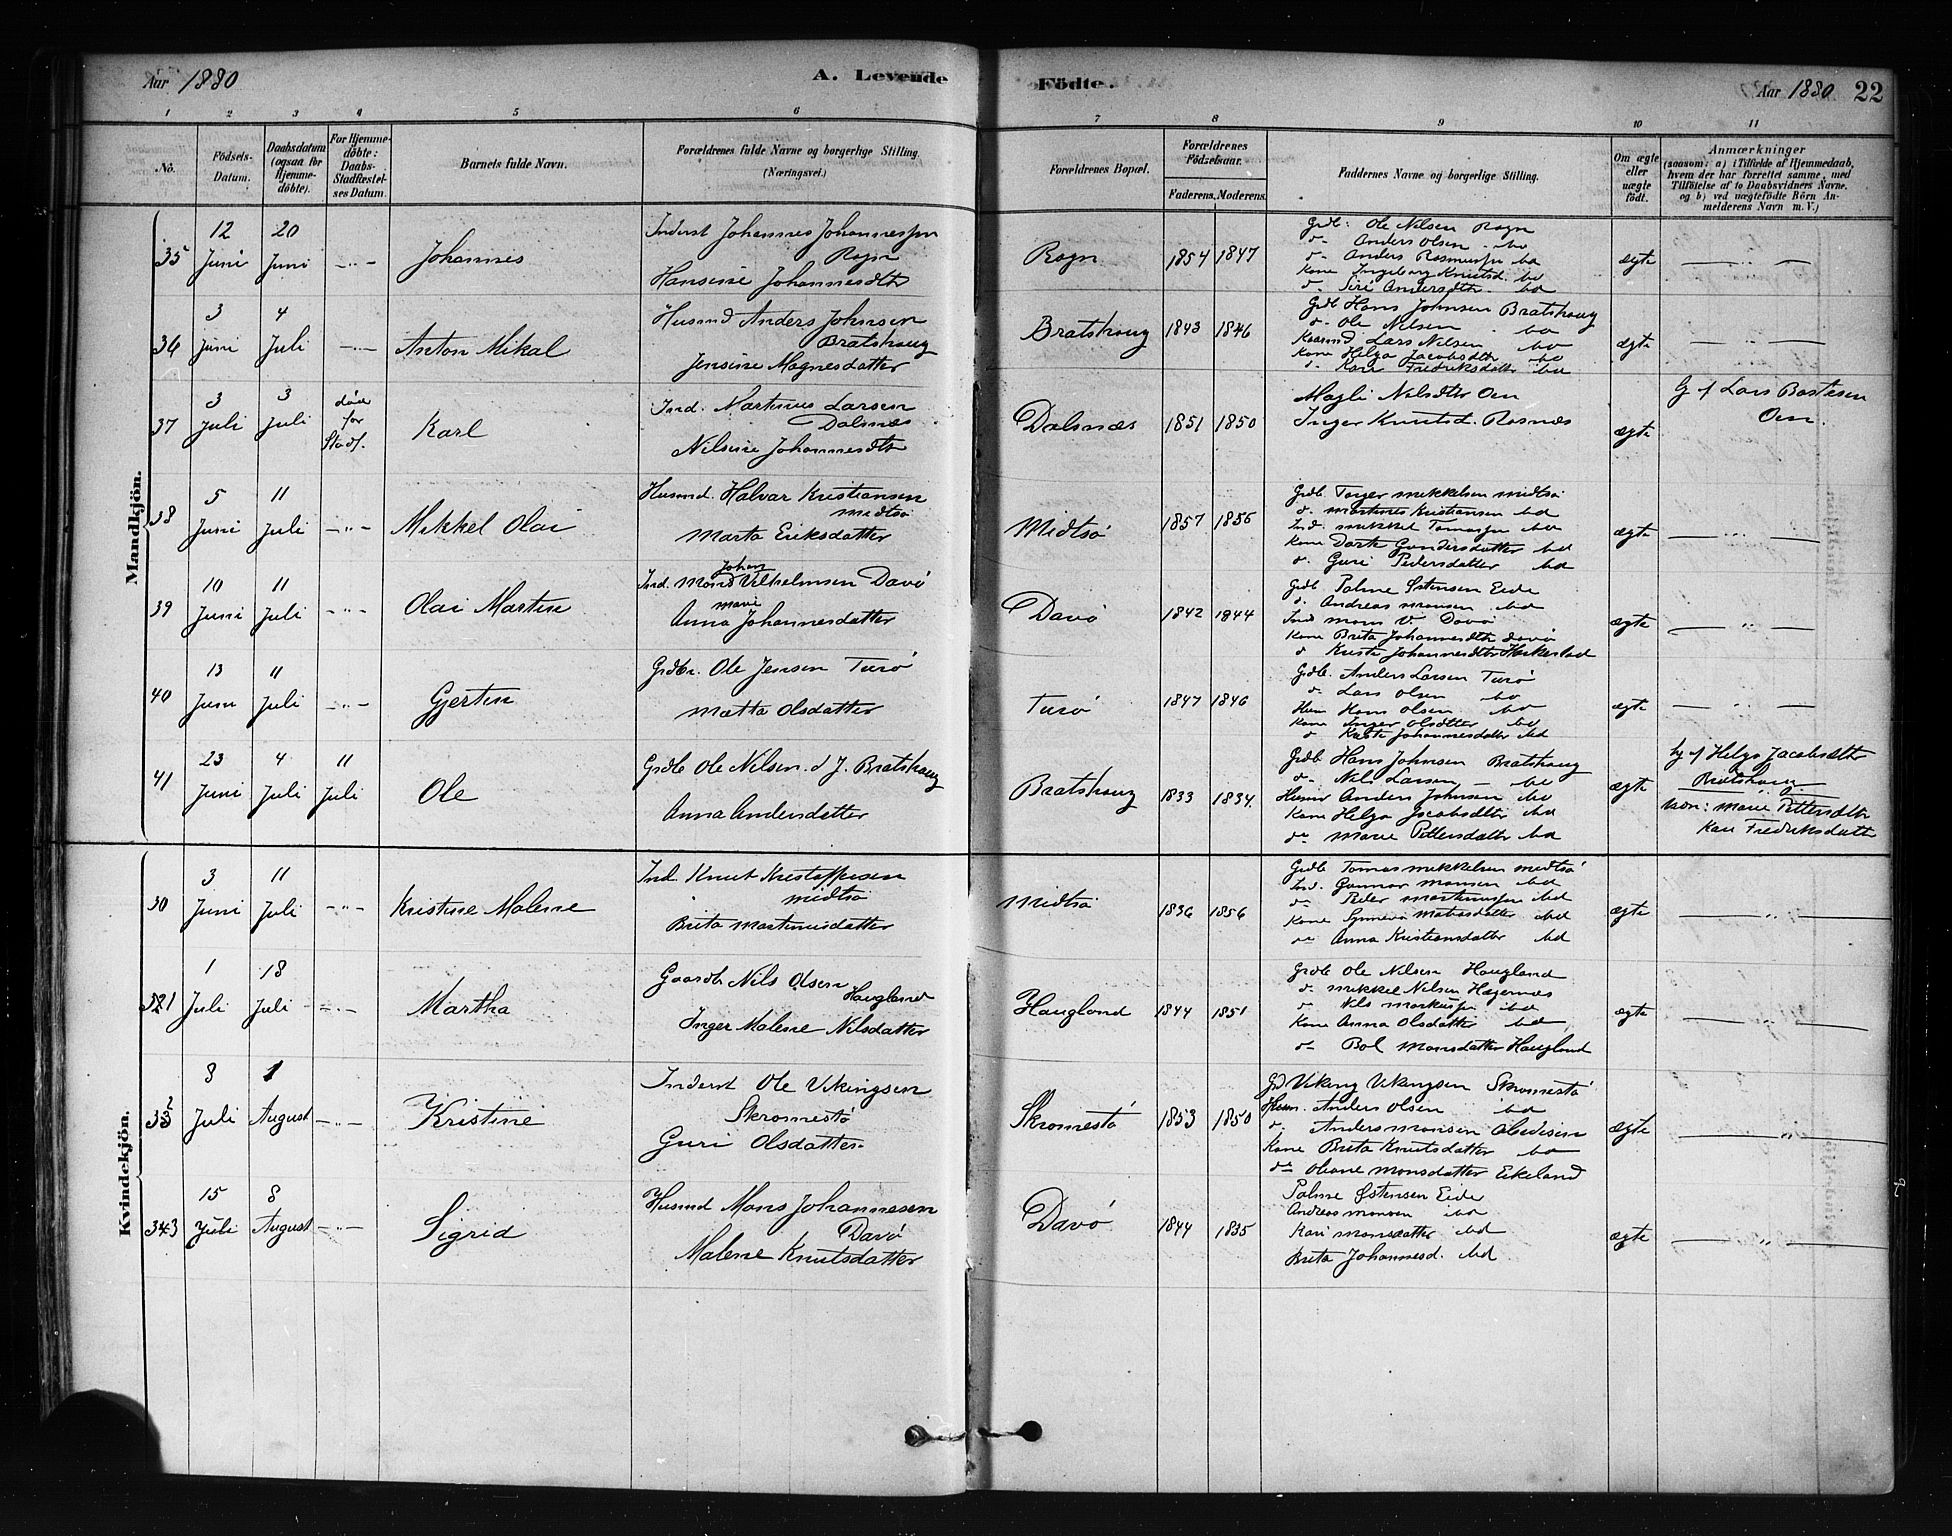 Aar 1880
A. Levende
Födte.
Aar 1880 22
1 2 3 4 5 6 7 8 9 10 11
No.
Födsels-Datum.
Daabsdatum (ogsaa for Hjemme-döbte).
For Hjemme-döbte: Daabs-Stadfæstel-ses Datum.
Barnets fulde Navn.
Forældrenes fulde Navne og borgerlige Stilling (Næringsvei.)
Forældrenes Bopæl.
Forældrenes Födselsaar.
Faderens. Moderens.
Faddernes Navne og borgerlige Stilling.
Om ægte eller uægte födt.
Anmærkninger
(saasom: a) i Tilfælde af Hjemmedaab, hvem der har forrettet samme, med Tilföielse af to Daabsvidners Navne. og b) ved uægtefödte Börn An-melderens Navn m. V.)
Mandkjön.
35 12 Juni 20 Juni -"- Johannes
Inderst Johannes Johannessen
Rogn
Hansine Johannesdtr
Rogn 1854 1847
Grdb: Ole Nilsen Rogn
d- Anders Olsen ibd
d- Anders Rasmussen ibd
Kone Ingeborg Knutsd. ibd
d- Siri Andersdtr. ibd
ægte
36 3 Juni 4 Juli -"- Anton Mikal
Husmd Anders Johnsen
Bratshoug
Jensine Magnesdatter
Bratshoug 1843 1846
Grdb Hans Johnsen Bratshoug
d- Ole Nilsen ibd
Lars Nilsen ibd
Kone Helga Jacobsdtr ibd
d- Kari Fredriksdatter ibd
ægte
37 3 Juli 3 Juli död før Stadf. Karl
Ind. Martinus Larsen
Dalsnæs
Nilsine Johannesdtr
Dalsnæs 1851 1850
Magli Nilsdtr Oen
Inger Knutsd. Rosnæs
ægte
G. f. Lars Bastesen
Oen.
38 5 Juni 11 Juli -"- Mikkel Olai
Husmd. Halvar Kristiansen
Midtsö
Marta Eriksdatter
Midtsö 1857 1856
Grdb Torger Mikkelsen Midtsö
d. Martines Kristiansen ibd
Ind. Mikkel Tomassen ibd
Kone Dorte Gundersdatter ibd
d. Guri Pedersdatter ibd
ægte
39 10 Juni 11 Juli -"- Olai Martin
Johan
Ind. Mons Vilhelmsen Davö
Marie
Anna Johannesdatter
Davö 1842 1844
Grdb Palme Østensen Eide
d. Andreas Monsen ibd
Ind Mons V. Davö
Kone Brita Johannesdtr Davö
d Kristi Johannesdtr
ægte
40 13 Juni 11 Juli -"- Gjertin
Grdbr. Ole Jensen Turö
Mætta Olsdatter
Turö 1847 1846
Grdb. Anders Larsen Turö
d. Lars Olsen ibd
Hum Hans Olsen ibd
Kone Inger Olsdtter ibd
d Johannesdatter ibd
ægte
41 23 Juni 4 Juli 11 Juli Ole
Grdb Ole Nilsen. d. J. Bratshoug
Anna Andersdatter
Bratshoug 1833 1834.
Grdb Hans Johnsen Bratshoug
d- Nils Larsen ibd
Husmd Anders Johnsen ibd
Kone Helga Jacobsdtter ibd
d- Marie Pettersdatter ibd
ægte
Hj. f. Helga Jacobsdtr
Bratshoug
Marie Pettersdtr
Kari Fredriksdattr
Kvindekjön.
30 3 Juni 11 Juli -"- Kristine Malene
Ind. Knut Kristoffersen
Midtsö
Brita Martinusdatter
Midtsö 1836 1856
Grdb Tomas Mikkelsen Midtsö
Ind. Gunnar Monsen ibd
d- Peder Martinussen ibd
Kone Synneva Matiasdatter ibd
d- Anna Kristiansdatter ibd
ægte
321 1 Juli 18 Juli -"- Martha
Gaardb Nils Olsen
Haugland
Inger Malene Nilsdatter
Haugland 1844 1851
Grdb Ole Nilsen Haugland
d. Mikkel Nilsen Hægernæs
d- Nils Markussen ibd
Kone Anna Olsdatter ibd
d- Bol Monsdatter Haugland
ægte
332 8 Juli 1 August -"- Kristine
Inderst Ole Vikingsen
Skromestö
Guri Olsdatter
Skromestö 1853 1850
Grd Viking Vikingsen Skromestö
Hum. Anders Olsen ibd
d. Anders Monsen
Kone Brita Knutsdatter ibd
d- Oliane Monsdatter Eikeland
ægte
343 15 Juli 8 August -"- Sigrid
Husmd Mons Johannesen
Davö
Malene Knutsdatter
Davö 1844 1835
Palme Østensen Eide
Andreas Monsen ibd
Kari Monsdatter ibd
Brita Johannesd. ibd
ægte